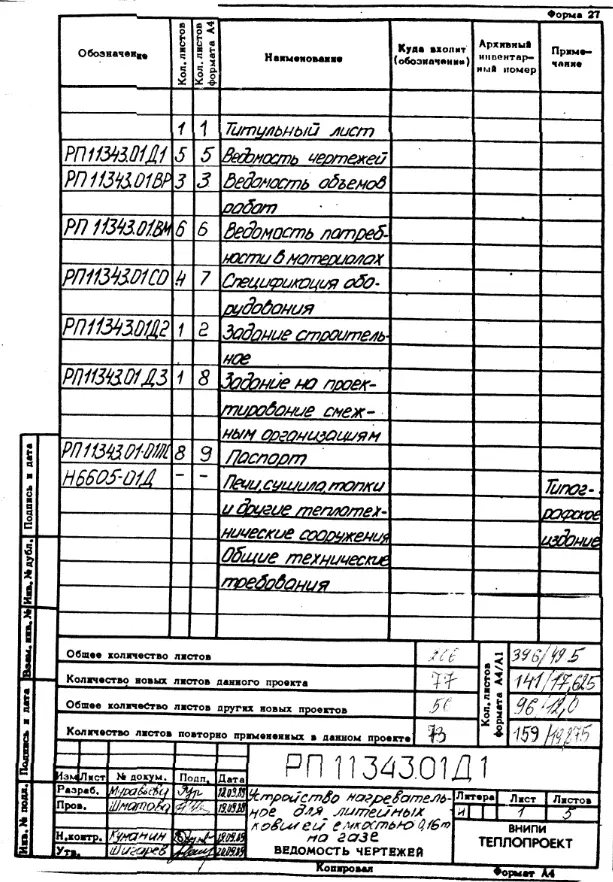 Форма 27
Обозначение Кол. листов Кол. листов формата А4 Наименование Куда входит (обозначение) Архивный инвентарный номер Примечание
1 1 Титульный лист
РП11343.01Д1 5 5 Ведомость чертежей
РП11343.01ВР 3 3 Ведомость объемов
работ
РП11343.01ВМ 6 6 Ведомость потреб-
ности в материалах
РП11343.01СО 4 7 Спецификация обо-
рудования
РП11343.01Д2 1 2 Задание строитель-
ное
РП11343.01Д3 1 8 Задание на проек-
тирование смеж-
ным организациям
РП11343.01-01ПС 8 9 Паспорт
Н6605-01Д - - Печи, сушила, топки Типог-
и другие теплотех- рафское
нические сооружения издание
Общие технические
требования
Общее количество листов 396/49.5
Количество новых листов данного проекта 77 141/17,625
Общее количество листов других новых проектов 96/12,0
Количество листов повторно примененных в данном проекте 73 159/19,875
Кол. листов формата А4/А1
Подпись и дата
Инв. № дубл.
Взам. инв. №
Подпись и дата
Инв. № подл.
РП 11343.01Д1
Изм Лист № докум. Подп. Дата
Разраб.
Пров. Шматова
Н.контр. Куманин
Утв. Шигарев
Устройство нагреватель-
ное для литейных
ковшей емкостью 0,16т
на газе
ВЕДОМОСТЬ ЧЕРТЕЖЕЙ
Литера Лист Листов
И 1 5
ВНИПИ
ТЕПЛОПРОЕКТ
Копировал Формат А4